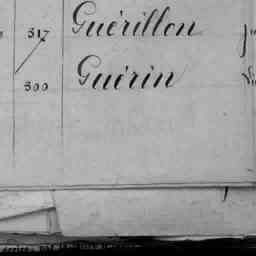 317 Guérillon
300 Guérin